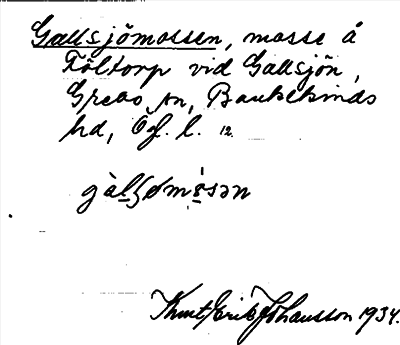 Gallsjömossen, mosse å
Föltorp vid Gallsjön,
Grebo sn, Bankekinds
hd, Ög. l. 12.
Knut Erik Johansson 1934.